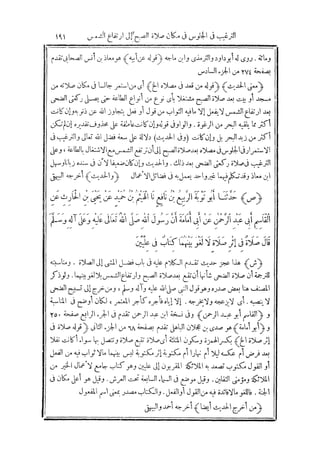 الترغيب فى الجلوس فى مكان صلاة الصبح إلى ارتفاع الشمس ١٩١
ومائة . روى له أبوداود والترمذى وابن ماجه ﴿قوله عن أبيه﴾ هو معاذ بن أنس الصحابى تقدم
بصفحة ٢٧٤ من الجزء السادس
﴿معنى الحديث﴾ ﴿قوله من قعد فى مصلاه الخ﴾ أى من استمر جالسا فى مكان صلاته من
مسجد أو بيت بعد صلاة الصبح مشتغلا بأى نوع من أنواع الطاعة حتى يصلى ركعتى الضحى
بعد ارتفاع الشمس لايفعل إلا مافيه الثواب من قول أو فعل يتجاوز الله عن ذنوبه وإن كانت
أكثر مما يلقيه البحر من الرغوة . والواو فى قوله وإن كانت عاطفة على محذوف تقديره إن لم تكن
أكثر من زبد البحر بل وإن كانت ﴿وفى الحديث﴾ دلالة على سعة فضل الله تعالى والترغيب فى
الاستمرار فى الجلوس فى مصلاه بعد صلاة الصبح إلى أن ترتفع الشمس مع الاشتغال بالطاعة ، وعلى
الترغيب فى صلاة ركعتى الضحى بعد ذلك . والحديث وإن كان ضعيفا لأن فى سنده زبان وسهيل
ابن معاذ وقد تكلم فيهما غير واحد يعمل به فى فضائل الأعمال ﴿والحديث﴾ أخرجه البيهقى
﴿ص﴾ حَدَّثَنَا أَبُو تَوْبَةَ الرَّبِيعُ بْنُ نَافِعٍ نَا الْهَيْثَمُ بْنُ حُمَيْدٍ عَنْ يَحْيَى بْنِ الْحَارِثِ عَنِ
الْقَاسِمِ أَبِي عَبْدِ الرَّحْمَنِ عَنْ أَبِي أُمَامَةَ أَنَّ رَسُولَ اللهِ صَلَّى اللهُ تَعَالَى عَلَيْهِ وَعَلَى آلِهِ وَسَلَّمَ
قَالَ صَلَاةٌ فِي إِثْرِ صَلَاةٍ لَا لَغْوَ بَيْنَهُمَا كِتَابٌ فِي عِلِّيِّينَ
﴿ش﴾ هذا عجز حديث تقدم الكلام عليه فى باب فضل المشى إلى الصلاة . ومناسبته
للترجمة أن صلاة الضحى شأنها أن تقع بعد صلاة الصبح وارتفاع الشمس بلا لغو بينهما . ولو ذكر
المصنف هنا بعض صدره وهو قول النبى صلى الله عليه وآله وسلم ، ومن خرج إلى تسبيح الضحى
لا ينصبه . أى لايزعجه ولايخرجه . إلا إياه فأجره كأجر المعتمر ، لكان أوضح فى المناسبة
و ﴿القاسم أبو عبد الرحمن﴾ وفى نسخة ابن عبد الرحمن تقدم فى الجزء الرابع صفحة ٢٥٠
و ﴿أبو أمامة﴾ هو صدى بن عجلان الباهلى تقدم بصفحة ٦٨ من الجزء الثانى ﴿قوله صلاة فى
إثر صلاة الخ﴾ بكسر الهمزة وسكون المثلثة أى صلاة تتبع صلاة وتتصل بها سواء أكانت نفلا
بعد فرض أم عكسه ليلا أم نهارا أم مكتوبة إثر مكتوبة ليس بينهما مالا ثواب فيه من الفعل
أو القول مكتوب تصعد به الملائكة المقربون إلى عليين وهو كتاب جامع لأعمال الخير من
الملائكة ومؤمنى الثقلين . وقيل موضع فى السماء السابعة تحت العرش . وقيل هو أعلى مكان فى
الجنة . فاللغو مالا فائدة فيه من القول أو الفعل . والكتاب مصدر بمعنى اسم المفعول
﴿من أخرج الحديث أيضا﴾ أخرجه أحمد والبيهقى